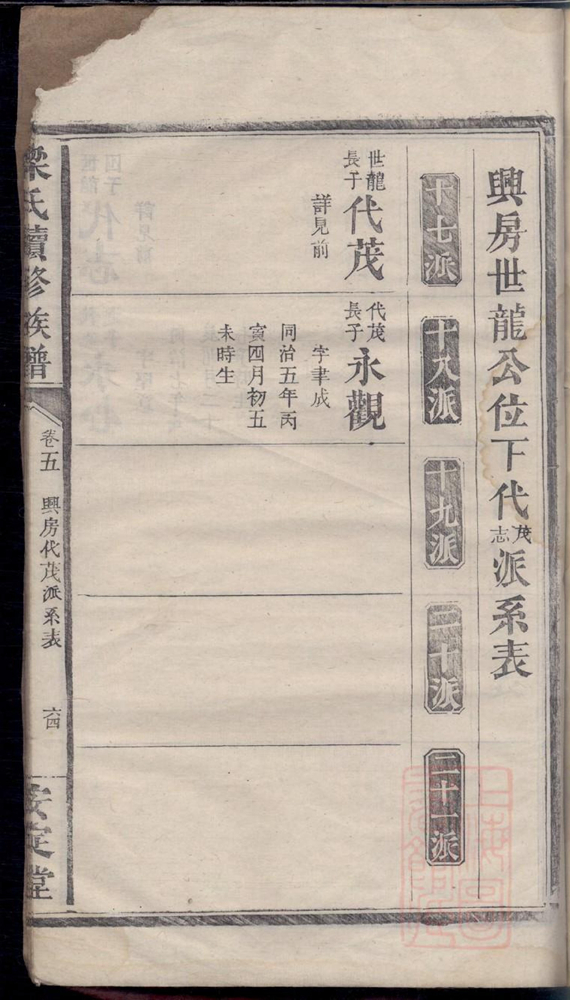 興房世龍公位下代茂志派系表
十七派
十八派
十九派
二十派
二十一派
世龍
長子
代茂
詳見前
代茂
長子
永觀
字聿成
同治五年丙
寅四月初五
未時生
梁氏續修族譜
卷五
興房代茂派系表
六四
安定堂